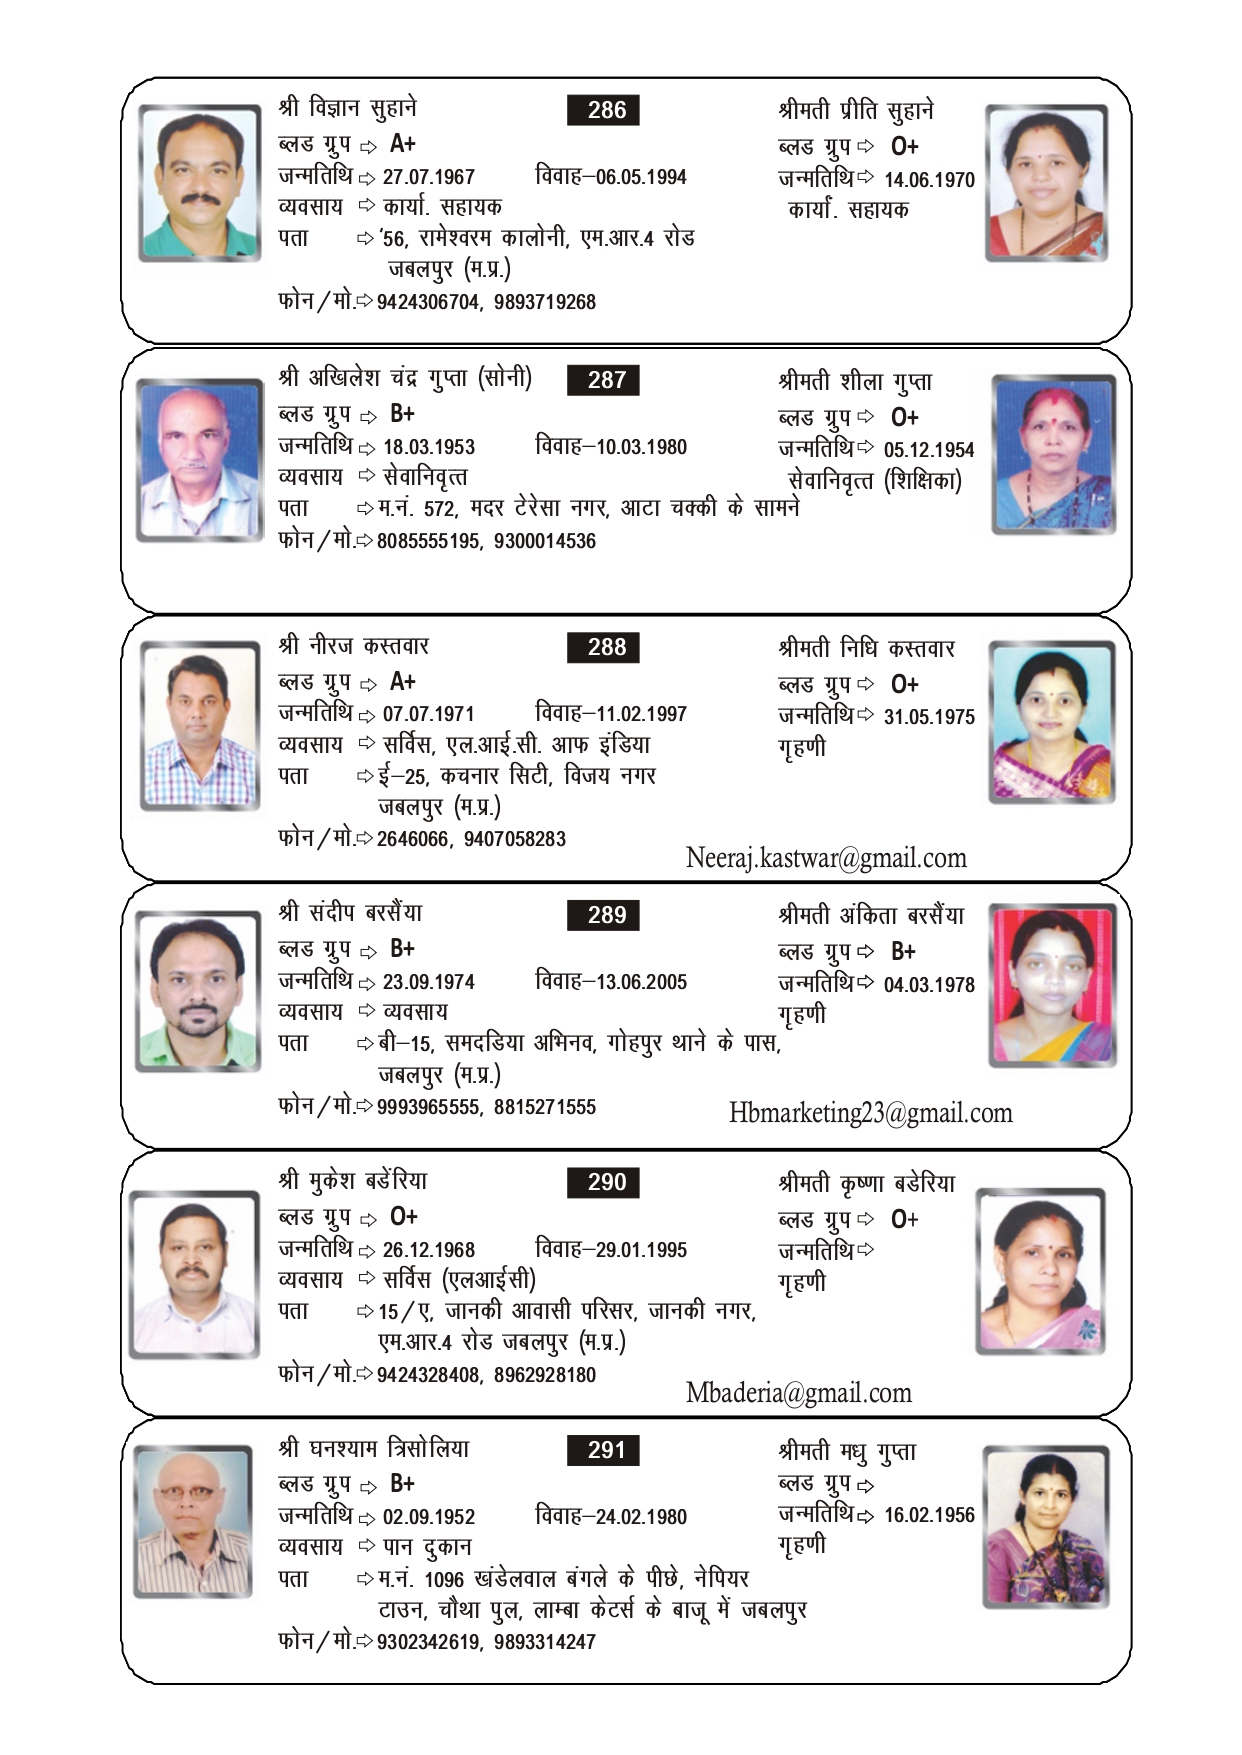 श्री विज्ञान सुहाने 286 श्रीमती प्रीति सुहाने
ब्लड ग्रुप ⇨ A+ ब्लड ग्रुप ⇨ O+
जन्मतिथि ⇨ 27.07.1967 विवाह–06.05.1994 जन्मतिथि ⇨ 14.06.1970
व्यवसाय ⇨ कार्या. सहायक कार्यां. सहायक
पता ⇨ '56, रामेश्वरम कालोनी, एम.आर.4 रोड
जबलपुर (म.प्र.)
फोन/मो.⇨ 9424306704, 9893719268
श्री अखिलेश चंद्र गुप्ता (सोनी) 287 श्रीमती शीला गुप्ता
ब्लड ग्रुप ⇨ B+ ब्लड ग्रुप ⇨ O+
जन्मतिथि ⇨ 18.03.1953 विवाह–10.03.1980 जन्मतिथि ⇨ 05.12.1954
व्यवसाय ⇨ सेवानिवृत्त सेवानिवृत्त (शिक्षिका)
पता ⇨ म.नं. 572, मदर टेरेसा नगर, आटा चक्की के सामने
फोन/मो.⇨ 8085555195, 9300014536
श्री नीरज कस्तवार 288 श्रीमती निधि कस्तवार
ब्लड ग्रुप ⇨ A+ ब्लड ग्रुप ⇨ O+
जन्मतिथि ⇨ 07.07.1971 विवाह–11.02.1997 जन्मतिथि ⇨ 31.05.1975
व्यवसाय ⇨ सर्विस, एल.आई.सी. आफ इंडिया गृहणी
पता ⇨ ई–25, कचनार सिटी, विजय नगर
जबलपुर (म.प्र.)
फोन/मो.⇨ 2646066, 9407058283
Neeraj.kastwar@gmail.com
श्री संदीप बरसैंया 289 श्रीमती अंकिता बरसैंया
ब्लड ग्रुप ⇨ B+ ब्लड ग्रुप ⇨ B+
जन्मतिथि ⇨ 23.09.1974 विवाह–13.06.2005 जन्मतिथि ⇨ 04.03.1978
व्यवसाय ⇨ व्यवसाय गृहणी
पता ⇨ बी–15, समदडिया अभिनव, गोहपुर थाने के पास,
जबलपुर (म.प्र.)
फोन/मो.⇨ 9993965555, 8815271555
Hbmarketing23@gmail.com
श्री मुकेश बडेंरिया 290 श्रीमती कृष्णा बडेरिया
ब्लड ग्रुप ⇨ O+ ब्लड ग्रुप ⇨ O+
जन्मतिथि ⇨ 26.12.1968 विवाह–29.01.1995 जन्मतिथि ⇨
व्यवसाय ⇨ सर्विस (एलआईसी) गृहणी
पता ⇨ 15/ए, जानकी आवासी परिसर, जानकी नगर,
एम.आर.4 रोड जबलपुर (म.प्र.)
फोन/मो.⇨ 9424328408, 8962928180
Mbaderia@gmail.com
श्री घनश्याम त्रिसोलिया 291 श्रीमती मधु गुप्ता
ब्लड ग्रुप ⇨ B+ ब्लड ग्रुप ⇨
जन्मतिथि ⇨ 02.09.1952 विवाह–24.02.1980 जन्मतिथि ⇨ 16.02.1956
व्यवसाय ⇨ पान दुकान गृहणी
पता ⇨ म.नं. 1096 खंडेलवाल बंगले के पीछे, नेपियर
टाउन, चौथा पुल, लाम्बा केटर्स के बाजू में जबलपुर
फोन/मो.⇨ 9302342619, 9893314247